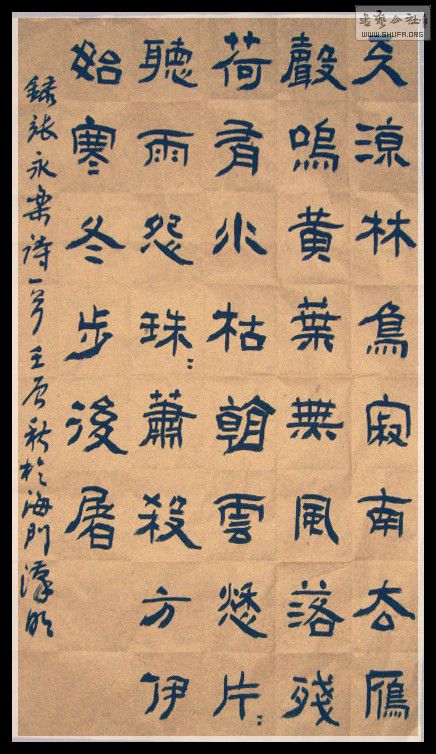 天涼林鳥寂南去鴈
聲嗚黃葉無風落殘
荷有水枯朝雲愁片〻
聽雨怨珠〻蕭殺方伊
始寒冬步後屠
錄張永樂詩一首壬辰秋於海門
书艺公社
WWW.SHUFA.ORG